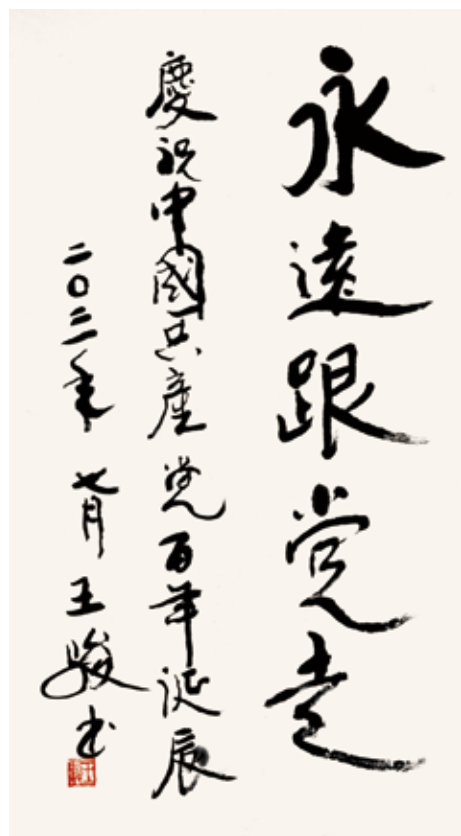 永遠跟党走
慶祝中國共產党百年诞辰
二〇二一年七月王骏书